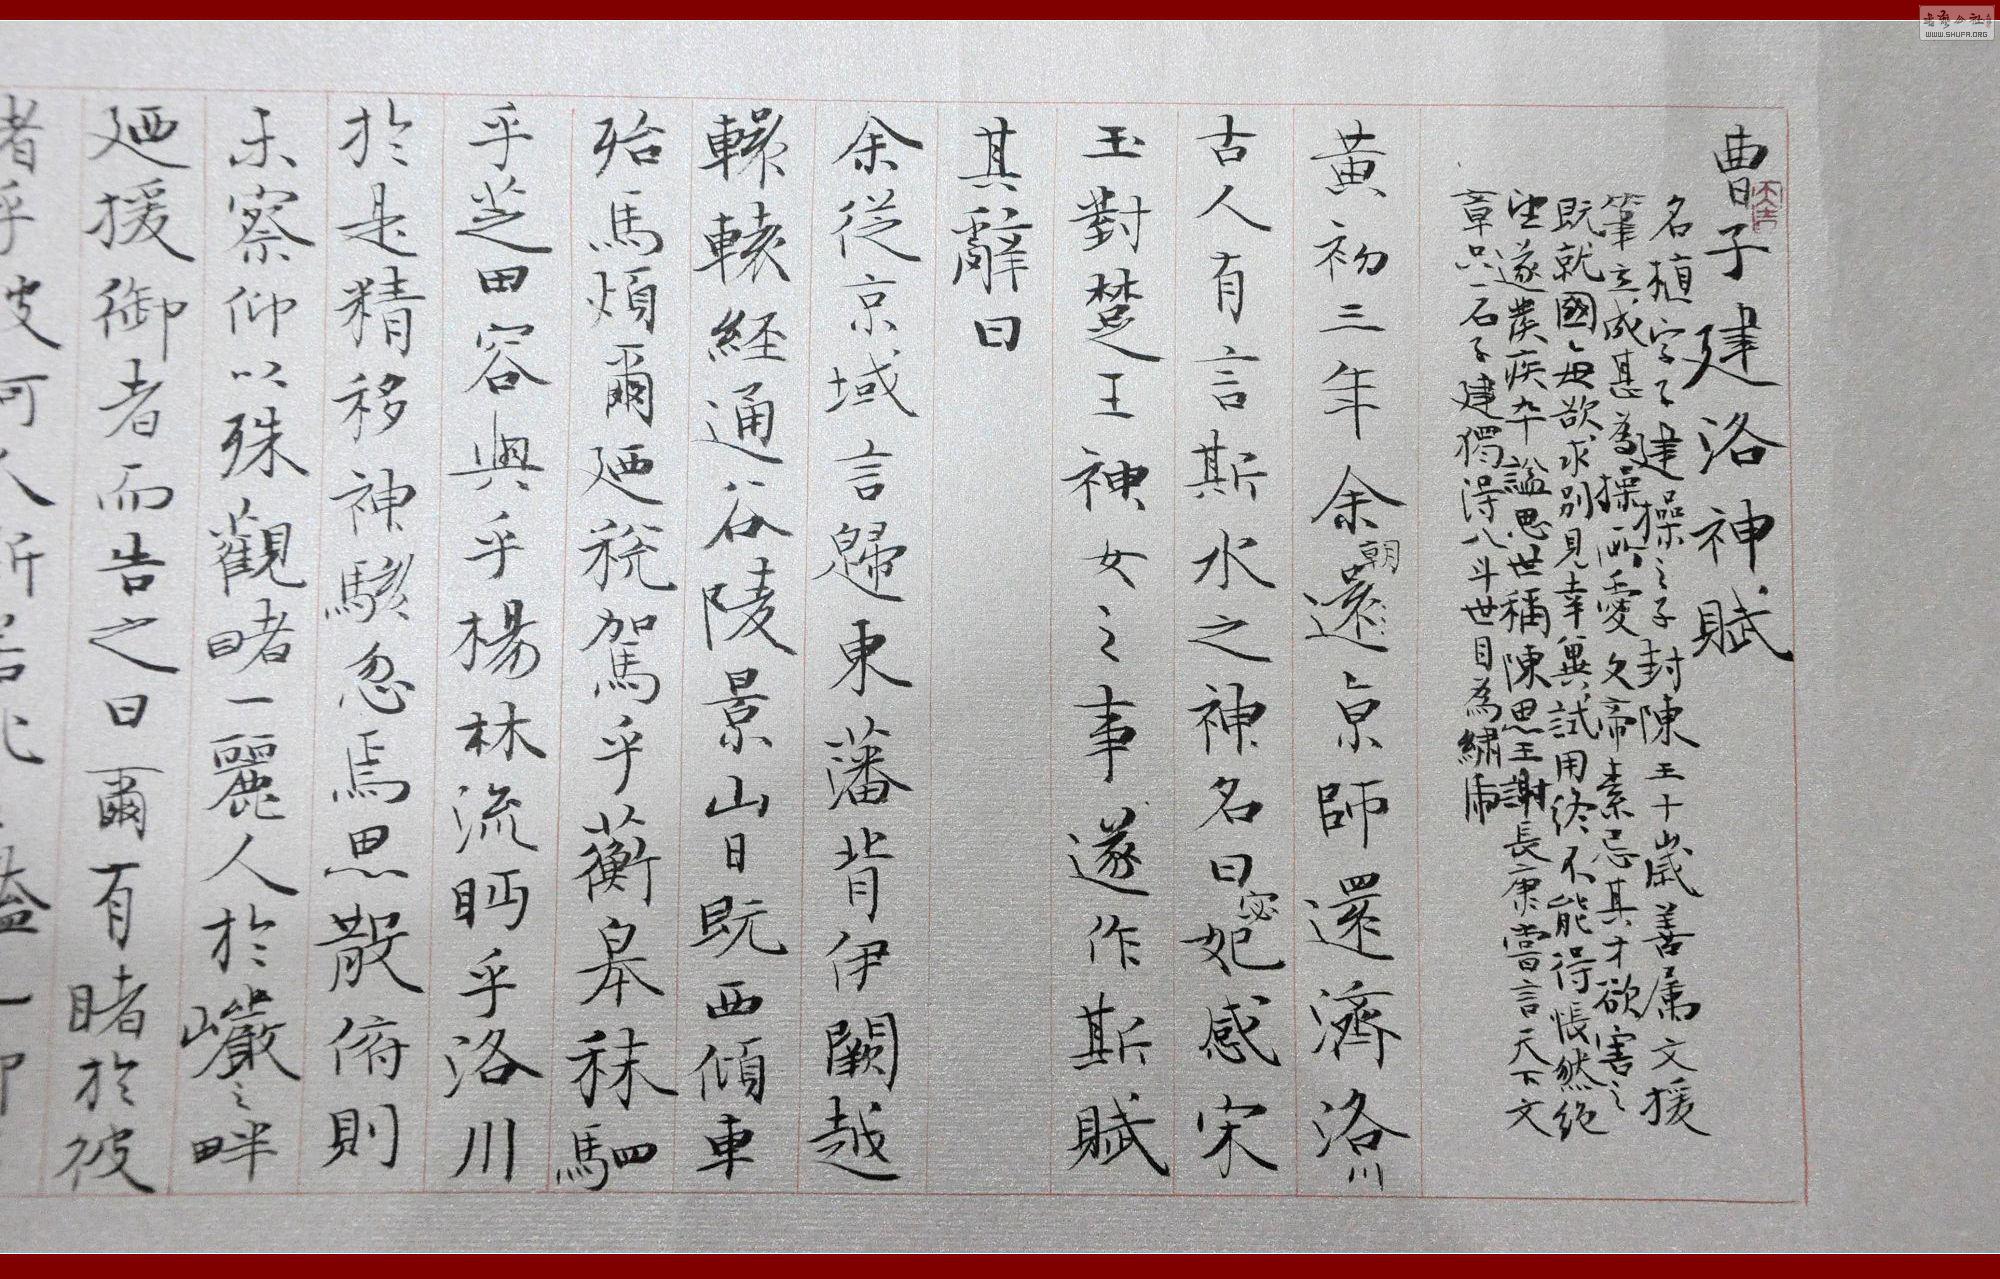 曹子建洛神賦
名植字子建操之子封陳王十歲善属文援
筆立成甚為操所愛文帝素忌其才欲害之
既就國每欲求別見幸冀試用終不能得悵然絕
望遂發疾卒謚思世稱陳思王謝長康嘗言天下文
章只一石子建獨得八斗世目為繡虎
黃初三年余朝還京師還濟洛川
古人有言斯水之神名曰宓妃感宋
玉對楚王神女之事遂作斯賦
其辭曰
余從京域言歸東藩背伊闕越
轘轅経通谷陵景山日既西傾車
殆馬煩爾廼稅駕乎蘅皋秣駟
乎芝田容與乎楊林流眄乎洛川
於是精移神駭忽焉思散俯則
未察仰以殊觀睹一麗人於巖之畔
廼援御者而告之曰爾有睹於彼
者乎彼何人斯若此
書法公社
WWW.SHUFA.ORG